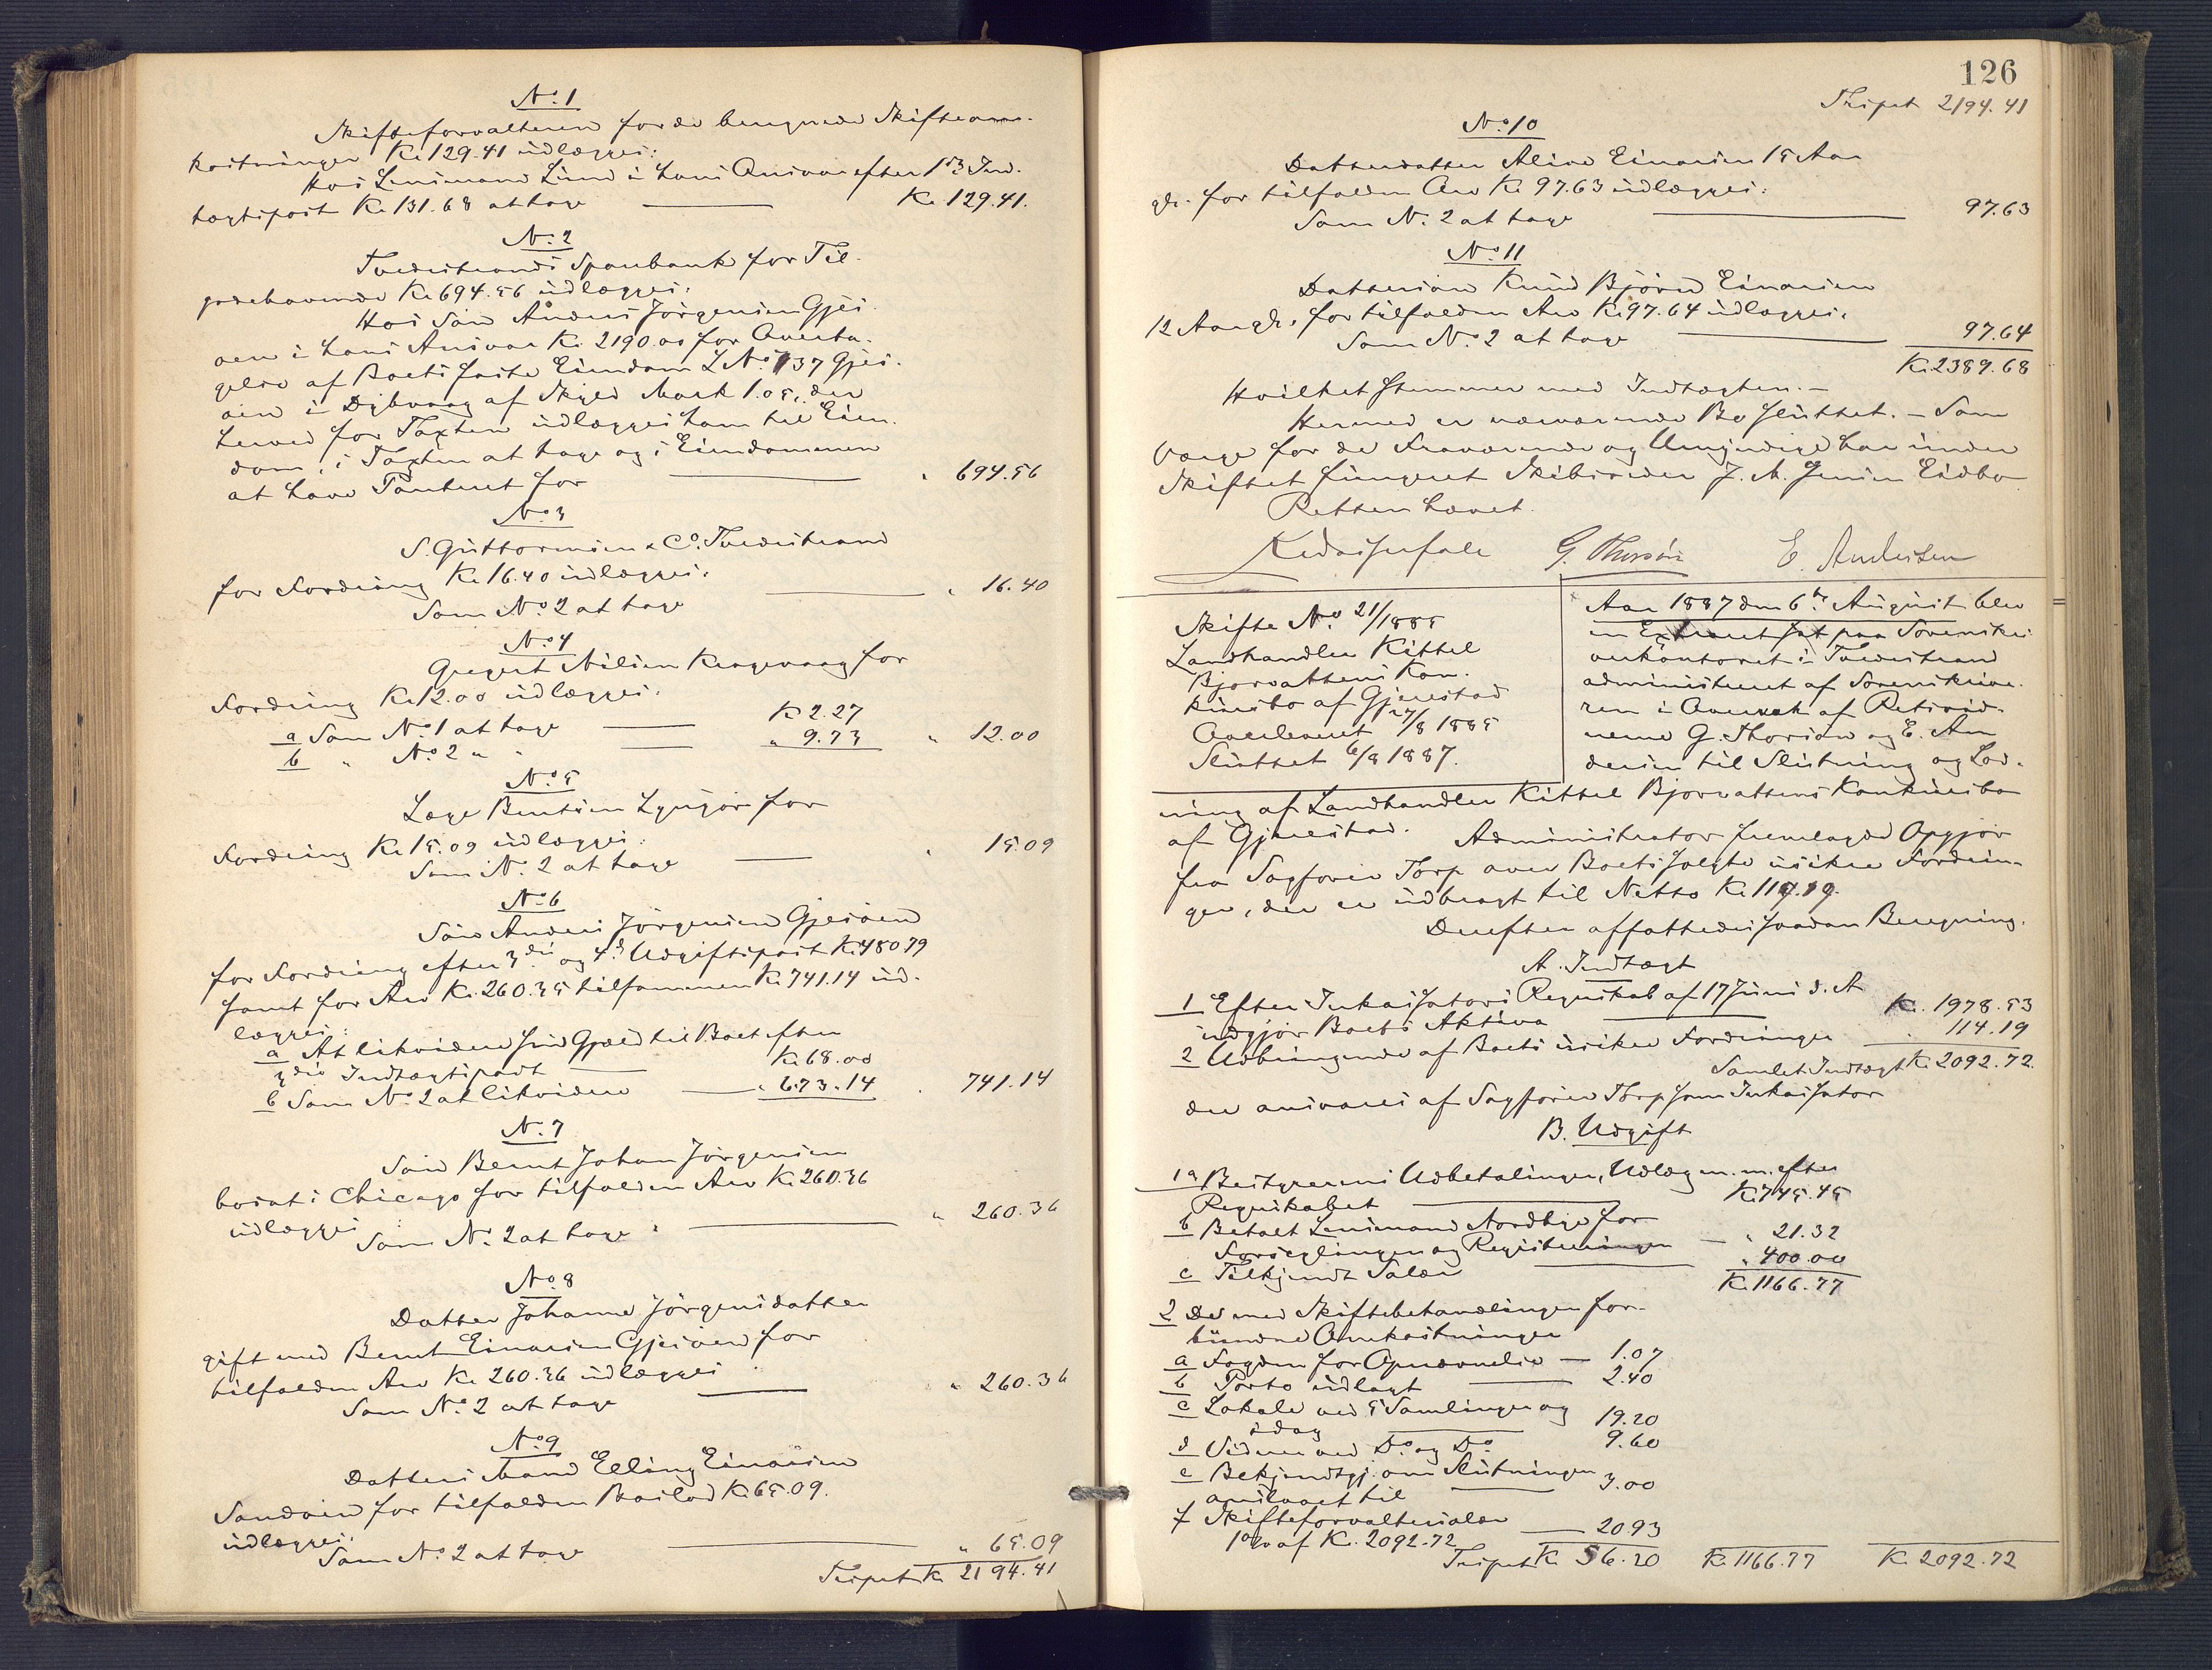 No. 1
Skifteforvalteren for de beregnede Skifteom-
kostninger Kr 129.41 udlægges:
Hos Lensmand Lund i hans Ansvar efter 1ste Ind-
tægtspost Kr 131.68 at tage Kr 129.41.
No. 2
Tvedestrands Sparebank for Til-
godehavende Kr 694.56 udlægges:
Hos Søn Anders Jørgensen Gjes-
øen i hans Ansvar Kr. 2190.00 for Overta-
gelse af Boets faste Eiendom L.No. 137 Gjes-
øen i Dybvaag af Skyld Mark 1.05, der
herved for Taxten udlægges ham til Eien-
dom, i Taxten at tage og i Eiendommen
at have Panteret for " 694.56
No. 3
S. Guttormsen & Co. Tvedestrand
for Fordring Kr 16.40 udlægges:
Som No. 2 at tage " 16.40
No. 4
Gregert Nilsen Krogevaag for
Fordring Kr 12.00 udlægges:
a Som No. 1 at tage Kr 2.27
b " No. 2 " " " 9.73 " 12.00
No. 5
Læge Bentsen Lyngør for
Fordring Kr 15.09 udlægges:
Som No. 2 at tage " 15.09
No. 6
Søn Anders Jørgensen Gjesøen
for Fordring efter 3die og 4de Udgiftspost Kr 480.79
samt for Arv Kr. 260.35 tilsammen Kr 741.14 ud-
lægges:
a At likvidere sin Gjæld til Boet efter
3die Indtægtspost Kr 68.00
b Som No. 2 at likvidere " 673.14 " 741.14
No. 7
Søn Bernt Johan Jørgensen
bosat i Chicago for tilfalden Arv Kr 260.36
udlægges:
Som No. 2 at tage " 260.36
No. 8
Datter Johanne Jørgensdatter
gift med Bernt Einarsen Gjesøen for
tilfalden Arv Kr 260.36 udlægges
Som No. 2 at tage " 260.36
No. 9
Datters Mand Elling Einarsen
Sandøen for tilfalden Boslod Kr 65.09.
udlægges:
Som No. 2 at tage " 65.09
Tripst Kr 2194.41
126
Tripst 2194.41
No. 10
Datterdatter Alise Einarsen 15 Aar
gl. for tilfalden Arv Kr 97.63 udlægges:
Som No. 2 at tage 97.63
No. 11
Dattersøn Knud Bjørn Einarsen
12 Aar gl. for tilfalden Arv Kr 97.64 udlægges:
Som No. 2 at tage 97.64
Kr. 2389.68
Hvilket stemmer med Indtægten. —
Hermed er nærværende Bo sluttet. — Som
Værge for de Fraværende og Umyndige har under
Skiftet fungeret Skibsreder J. A. Jensen Eidbo
Retten hævet.
G. Thorsøn E. Andersen
Skifte No. 21/1885
Landhandler Kittel
Bjorvattens Kon-
kursbo af Gjerestad
Overleveret 27/8 1885
Sluttet 6/8 1887.
Aar 1887 den 6te August blev
en Extraret sat paa Sorenskri-
verkontoret i Tvedestrand
administreret af Sorenskrive-
ren i Overvær af Retsvid-
nerne G. Thorsøn og E. An-
dersen til Slutning og Lod-
ning af Landhandler Kittel Bjorvattens Konkursbo
af Gjerestad. Administrator fremlagde Opgjør
fra Sagfører Torp over Boets solgte usikre Fordrin-
ger, der er udbragt til Netto Kr 114.19.
Derefter affattedes saadan Beregning.
A. Indtægt
1 Efter Inkassators Regnskab af 17 Juni d. A
udgjør Boets Aktiva Kr. 1978.53
2 Udbringende af Boets usikre Fordringer " 114.19
Samlet Indtægt Kr. 2092.72.
der ansvares af Sagfører Torp som Inkassator
B. Udgift
1 a Bestyrerens Udbetalinger, Udlæg m. m. efter
Regnskabet Kr 745.45
b Betalt Lensmand Nordbye for
Forseglingen og Registreringen " 21.32
c Tilkjendt Salær " 400.00
Kr. 1166.77
2 De med Skiftebehandlingen for-
bundne Omkostninger
a Fogden for Opnævnelse — 1.07
b Porto udlagt 2.40
c Lokale ved 5 Samlinger og
idag 19.20
d Vidner ved Do. og Do. 9.60
e Bekjendtgj. om Slutningen
anslaaet til 3.00
f Skifteforvaltersalær
1% af Kr. 2092.72 20.93
Tripst Kr 56.20 Kr. 1166.77 Kr. 2092.72